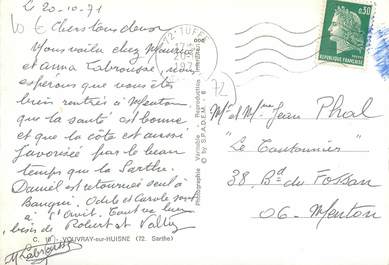 Le 20-10-71
Chers tous deux
Nous voilà chez Maurice
et Anna Labrousse, nous
espérons que vous êtes
bien rentrés à Menton
que la santé est bonne
et que la côte est aussi
favorisée par le beau
temps que la Sarthe.
Daniel est retourné seul à
Odile et Carole sont
à
de Robert et
M Labrousse
C. VOUVRAY-sur-HUISNE (72. Sarthe)
Photographie Véritable - Reproduction interdite
© by S.P.A.D.E.M. - 6
72 TUFFE
20-10
1971
0,30
REPUBLIQUE FRANÇAISE
POSTES
72
Mr et Mme Jean Phal
38. Bd du Fossan
06. Menton